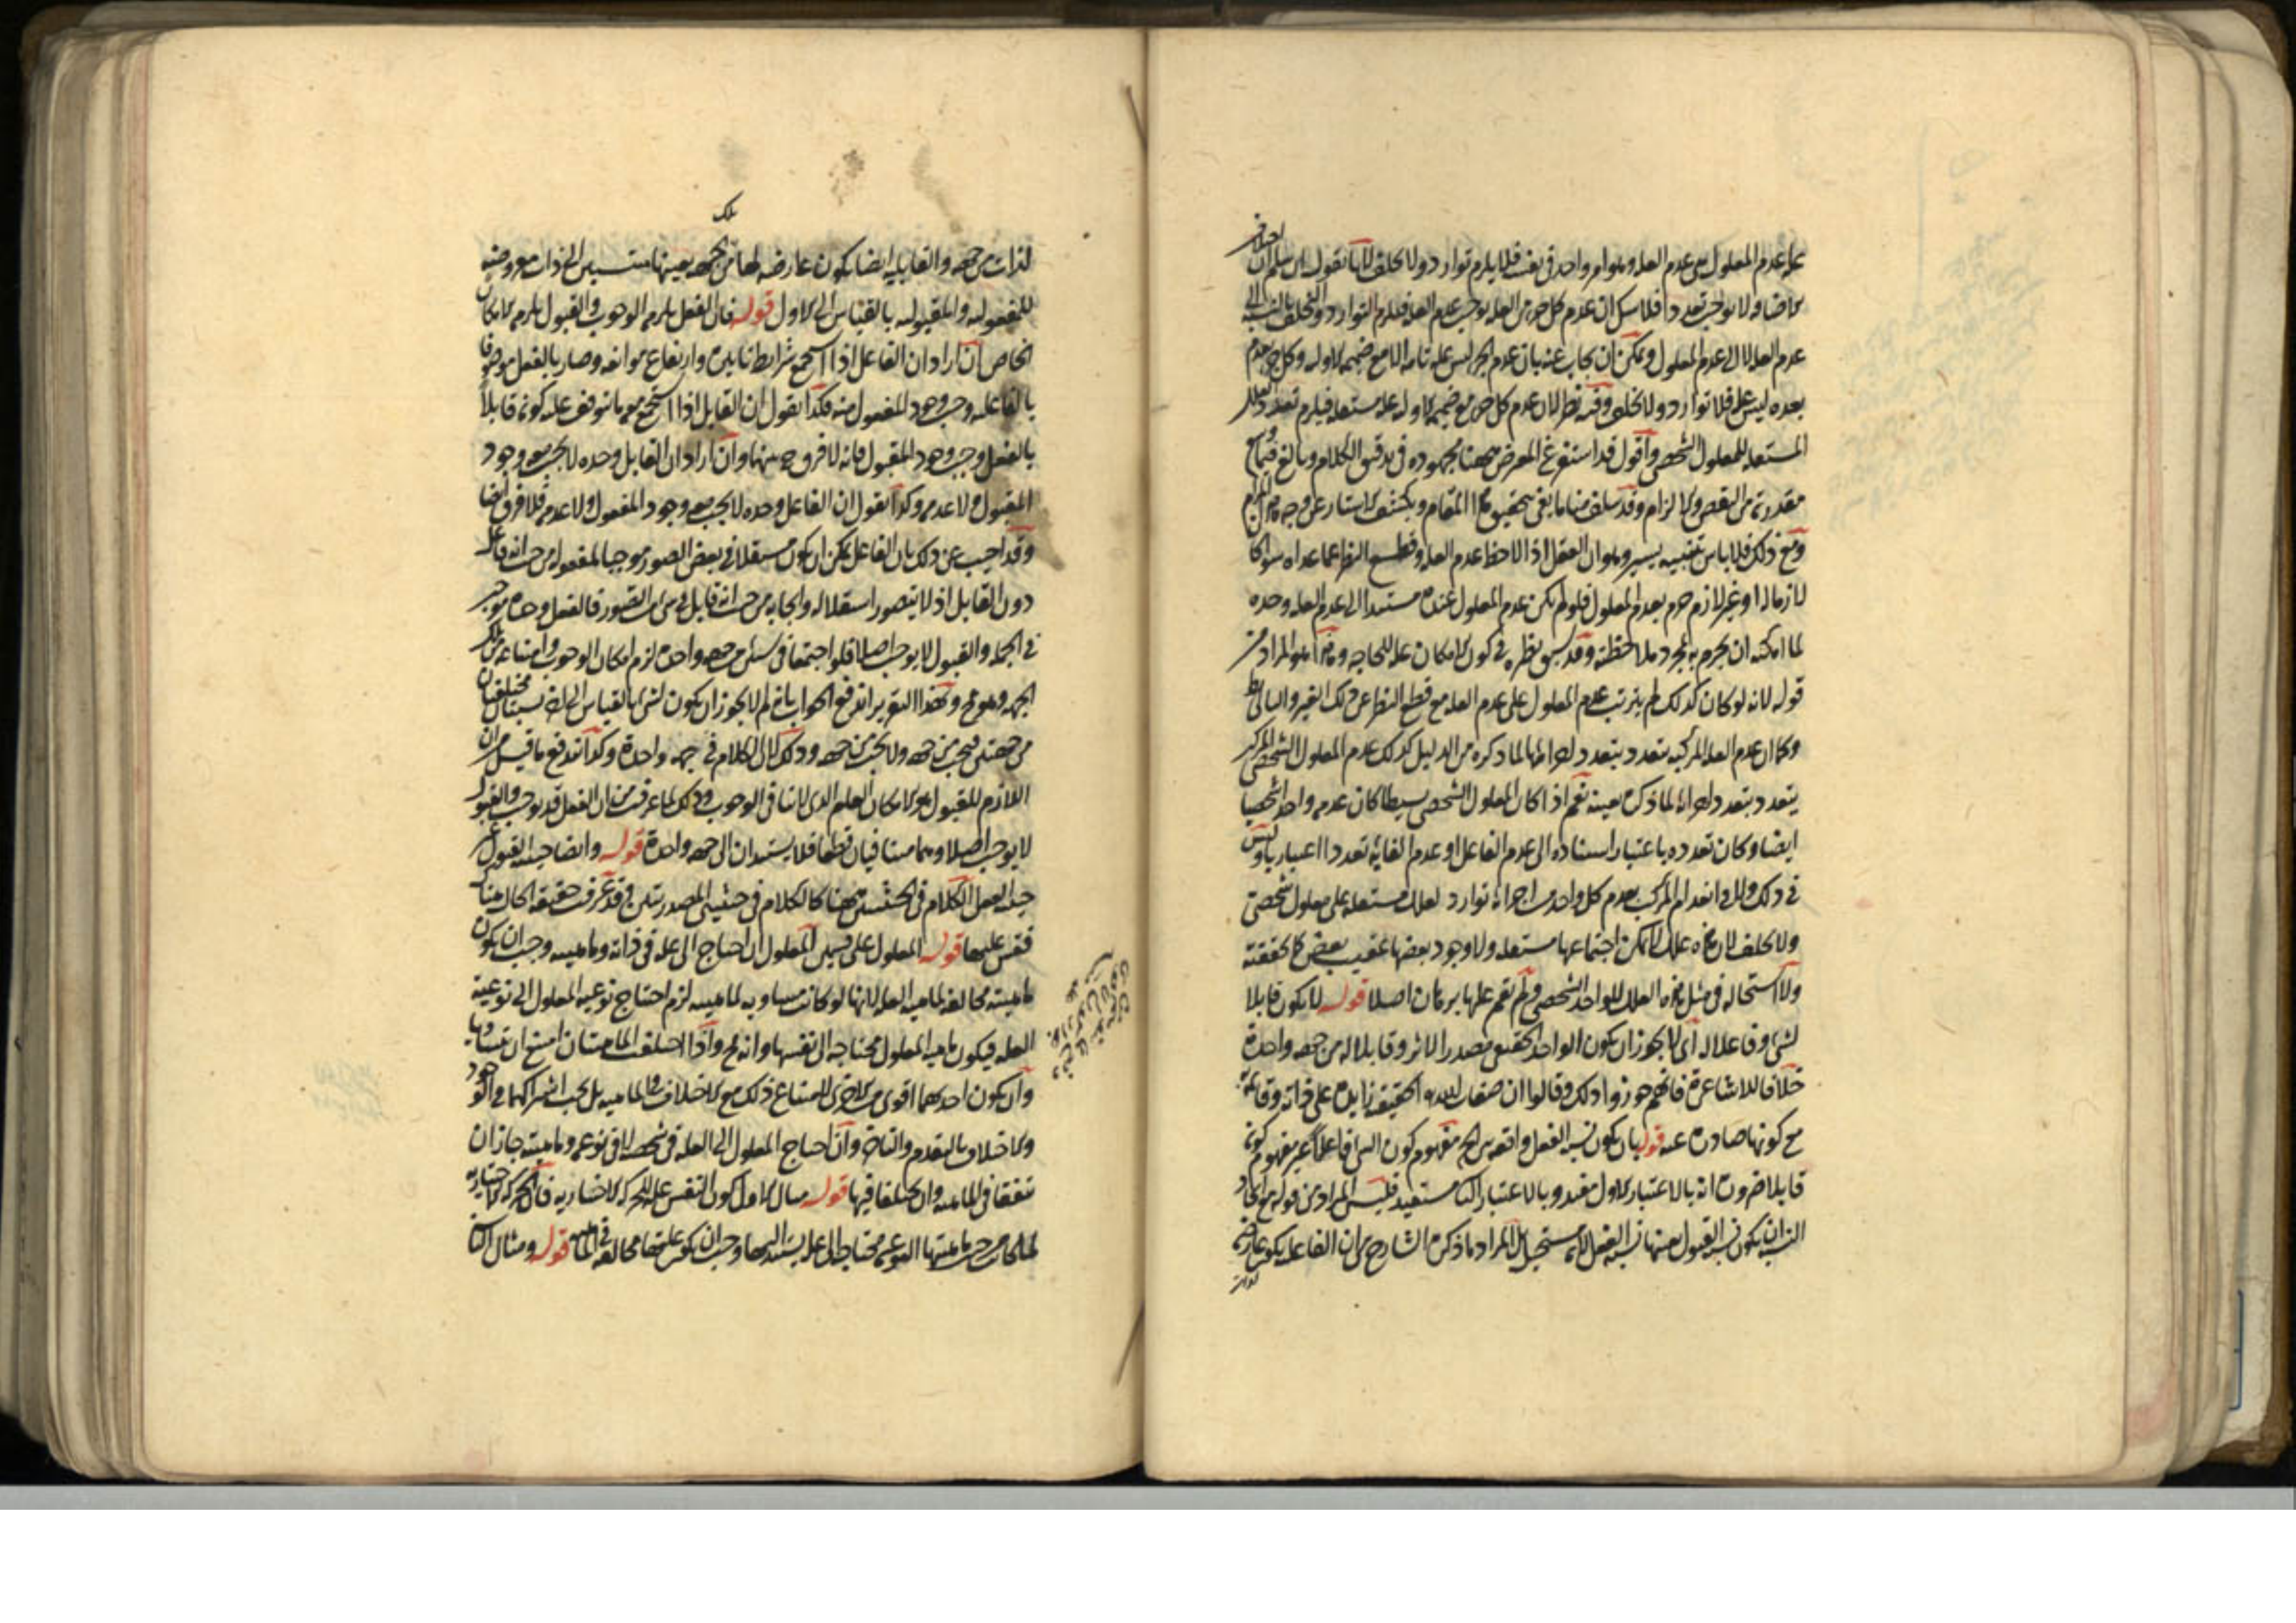 علة عدم المعلول هي عدم العلة وهو امر واحد في نفسه فلا يلزم توارد ولا تخلف لانا نقول ان سلم ان اجزاء
الاضافة لا يوجب تعددا فلا شك ان عدم كل جزء من العلة يوجب عدم العلة فيلزم التوارد والتخلف بالنسبة الى
عدم العلة لا الى عدم المعلول ويمكن ان يجاب عنه بان عدم الجزء ليس علة تامة الا مع ضميمة الاولية وكل جزء عدم
بعده ليس علة فلا توارد ولا تخلف وفيه نظر لان عدم كل جزء مع ضميمة الاولية علة مستقلة فيلزم تعدد العلل
المستقلة للمعلول الشخصي واقول قد استفرغ المعترض ههنا مجهوده في تدقيق الكلام وبالغ فيما وسع
مقدرته من النقض والالزام وقد سلف منا ما يفي بتحقيق هذا المقام ويكشف الاستار عن وجه المرام
ومع ذلك فلا باس بتنبيه يسير وهو ان العقل اذا لاحظ عدم العلة وقطع النظر عما عداه سواء كان
لازما له او غير لازم جزم بعدم المعلول فلو لم يكن عدم المعلول عنده مستندا الى عدم العلة وحده
لما امكنه ان يجزم به بمجرد ملاحظته وقد سبق نظيره في كون الامكان علة للحاجة وهذا هو المراد من
قوله لانه لو كان كذلك لم يترتب عدم المعلول على عدم العلة مع قطع النظر عن ذلك الغير والتالي بط
وكما ان عدم العلة المركبة يتعدد بتعدد اجزائها لما ذكره من الدليل كذلك عدم المعلول الشخصي المركب
يتعدد بتعدد اجزائه لما ذكره بعينه نعم اذا كان المعلول الشخصي بسيطا كان عدمه واحدا شخصيا
ايضا وكان تعدده باعتبار استناده الى عدم الفاعل او عدم الغاية تعددا اعتباريا وليس
في ذلك ولا في انعدام المركب بعدم كل واحد من اجزائه توارد لعلل مستقلة على معلول شخصي
ولا تخلف لان هذه علل لا يمكن اجتماعها مستقلة ولا وجود بعضها عقيب بعض كما حققته
ولا استحالة في مثل هذه العلل للواحد الشخصي ولم يقم عليها برهان اصلا قوله لا يكون قابلا
لشيء وفاعلا له اي لا يجوز ان يكون الواحد الحقيقي مصدرا لاثر وقابلا له من جهة واحدة
خلافا للاشاعرة فانهم جوزوا ذلك وقالوا ان صفات الله الحقيقية زايدة على ذاته وقائمة به
مع كونها صادرة عنه قوله بان يكون نسبة الفعل واقعة من الخ مفهوم كون الشيء فاعلا غير مفهوم كونه
قابلا ضرورة انه بالاعتبار الاول مفيد وبالاعتبار الثاني مستفيد فليس المراد من قوله مع اتحاد
النسبة ان يكون نسبة القبول بعينها نسبة الفعل لانه مستحيل بل المراد ما ذكره الشارح من ان الفاعلية يكون عارضة
لذات
لذات من جهة والقابلية ايضا يكون عارضة لها من تلك الجهة بعينها منتسبين الى ذات معروضة
للمفعولية والمقبولية بالقياس الى الاول قوله فان الفعل يلزمه الوجوب والقبول يلزمه الامكان
الخاص ان اراد ان الفاعل اذا استجمع شرايط تاثيره وارتفاع موانعه وصار بالفعل موصوفا
بالفاعلية وجب وجود المفعول منه فكذا نقول ان القابل اذا استجمع معه ما يتوقف عليه كونه قابلا
بالفعل وجب وجود المقبول فانه لا فرق ح بينهما وان اراد ان القابل وحده لا يجب معه وجود
المقبول ولا عدمه وكذا نقول ان الفاعل وحده لا يجب معه وجود المفعول ولا عدمه فلا فرق ايضا
وقد اجيب عن ذلك بان الفاعل يمكن ان يكون مستقلا في بعض الصور موجبا لمفعوله من حيث انه فاعل
دون القابل اذ لا يتصور استقلاله وايجابه من حيث انه قابل في شيء من الصور فالفعل وحده موجب
في الجملة والقبول لا يوجب اصلا فلو اجتمعا في شيء من جهة واحدة لزم امكان الوجوب وامتناعه من تلك
الجهة وهو مح وبهذا التقرير اندفع الجواب بانه لم لا يجوز ان يكون لشيء بالقياس الى اخر نسبتان مختلفتان
من جهتين فيجب من جهة ولا يجب من جهة وذلك لان الكلام في جهة واحدة وكذا اندفع ما قيل من ان
اللازم للمقبول هو الامكان العام الذي لا ينافي الوجوب وذلك لما عرفت من ان الفعل قد يوجب والقبول
لا يوجب اصلا وهما متنافيان قطعا فلا يستندان الى جهة واحدة قوله وايضا حيثية القبول غير
حيثية الفعل الكلام في الحيثيتين ههنا كالكلام في حيثيتي المصدريتين وقد عرفت حقيقة الحال هناك
فقس عليها قوله المعلول على قسمين المعلول ان احتاج الى علة في ذاته وماهيته وجب ان يكون
ماهيته مخالفة لماهية العلة لانها لو كانت مساوية لماهيته لزم احتياج نوعية المعلول الى نوعية
العلة فيكون ماهية المعلول محتاجة الى نفسها وانه مح واذا اختلفت الماهيتان امتنع ان يتساويا
وان يكون احدهما اقوى من الاخرى لامتناع ذلك مع الاختلاف في الماهية بل يجب اشتراكهما في الوجود
والاختلاف بالتقدم والتاخر وان احتاج المعلول الى العلة في شخصه لا في نوعه وماهيته جاز ان
يتفقا في الماهية وان يختلفا فيها قوله مثال الاول كون النفس علة للحركة الاختيارية فان الحركة الاختيارية
لما كانت من حيث ماهيتها النوعية محتاجة الى علة يستند اليها وجب ان يكون علتها مخالفة لها في الماهية قوله ومثال الثاني